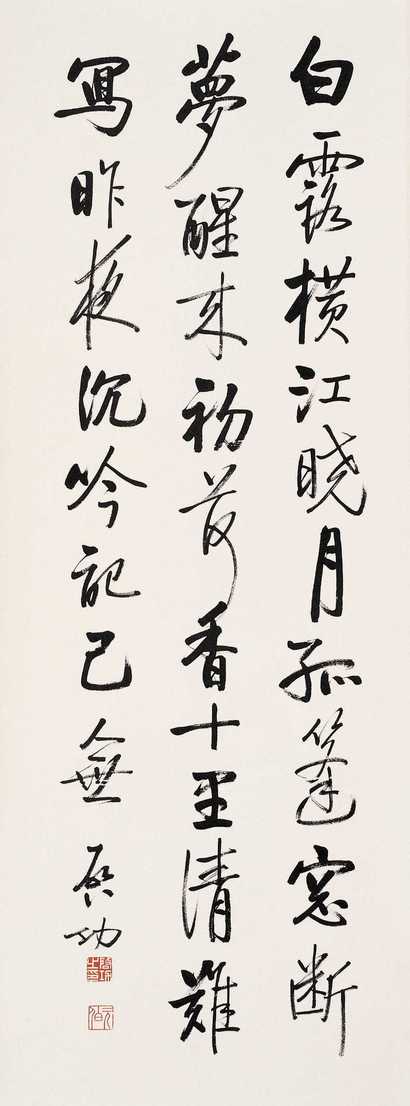 白露横江晓月孤篷窓断
夢醒来初荷香十里清難
寫昨夜沉吟記已無
启功